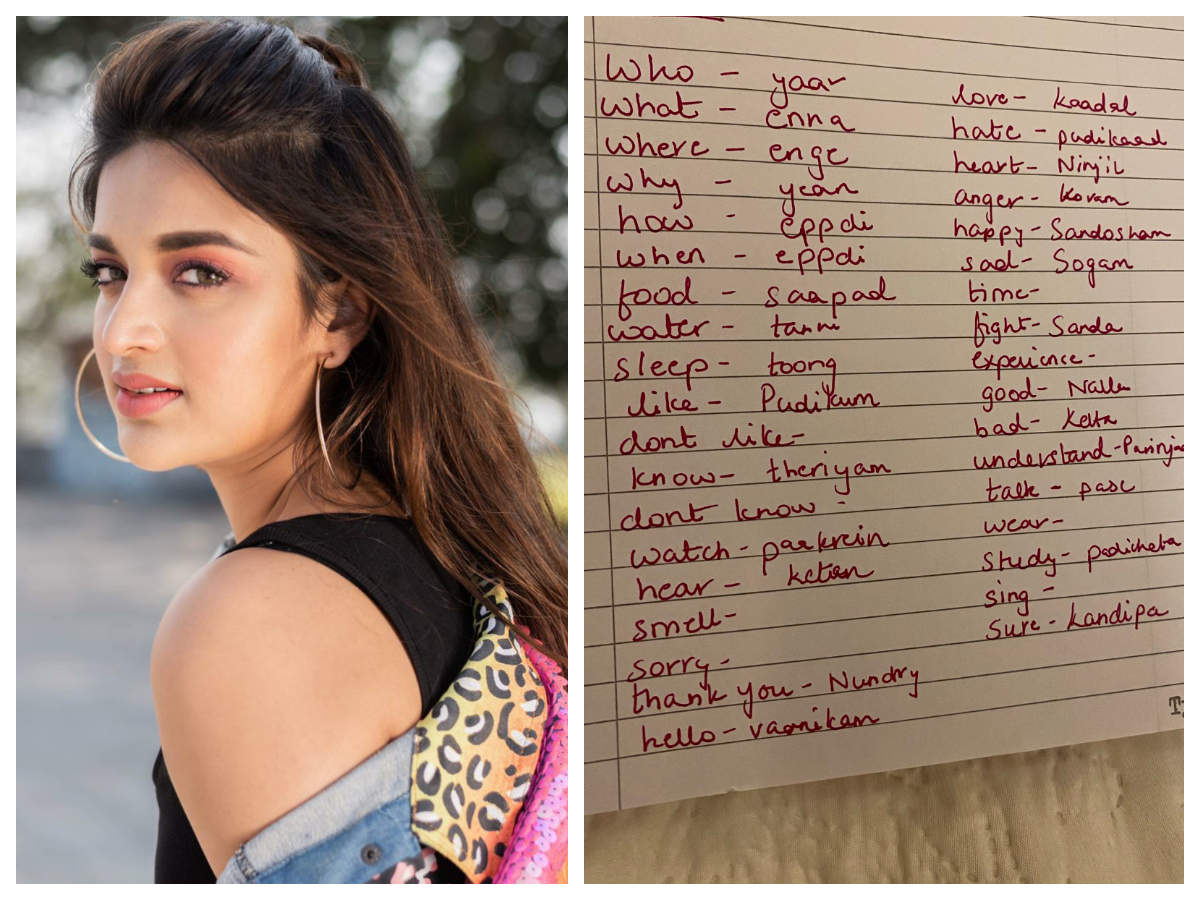 Who - yaar
What - enna
Where - enge
Why - yean
how - eppdi
when - eppdi
food - saapad
water - tanni
sleep - toong
like - Pudikum
dont like -
know - theriyam
dont know -
watch - parkrein
hear - ketan
smell -
sorry -
thank you - Nundry
hello - vaanikam
love - kaadal
hate - pudikaad
heart - Ninjil
anger - Kovam
happy - Sandosham
sad - Sogam
time -
fight - Sanda
experience -
good - Nalla
bad - Ketta
understand -
talk - pase
wear -
study - padicheta
sing -
sure - kandipa